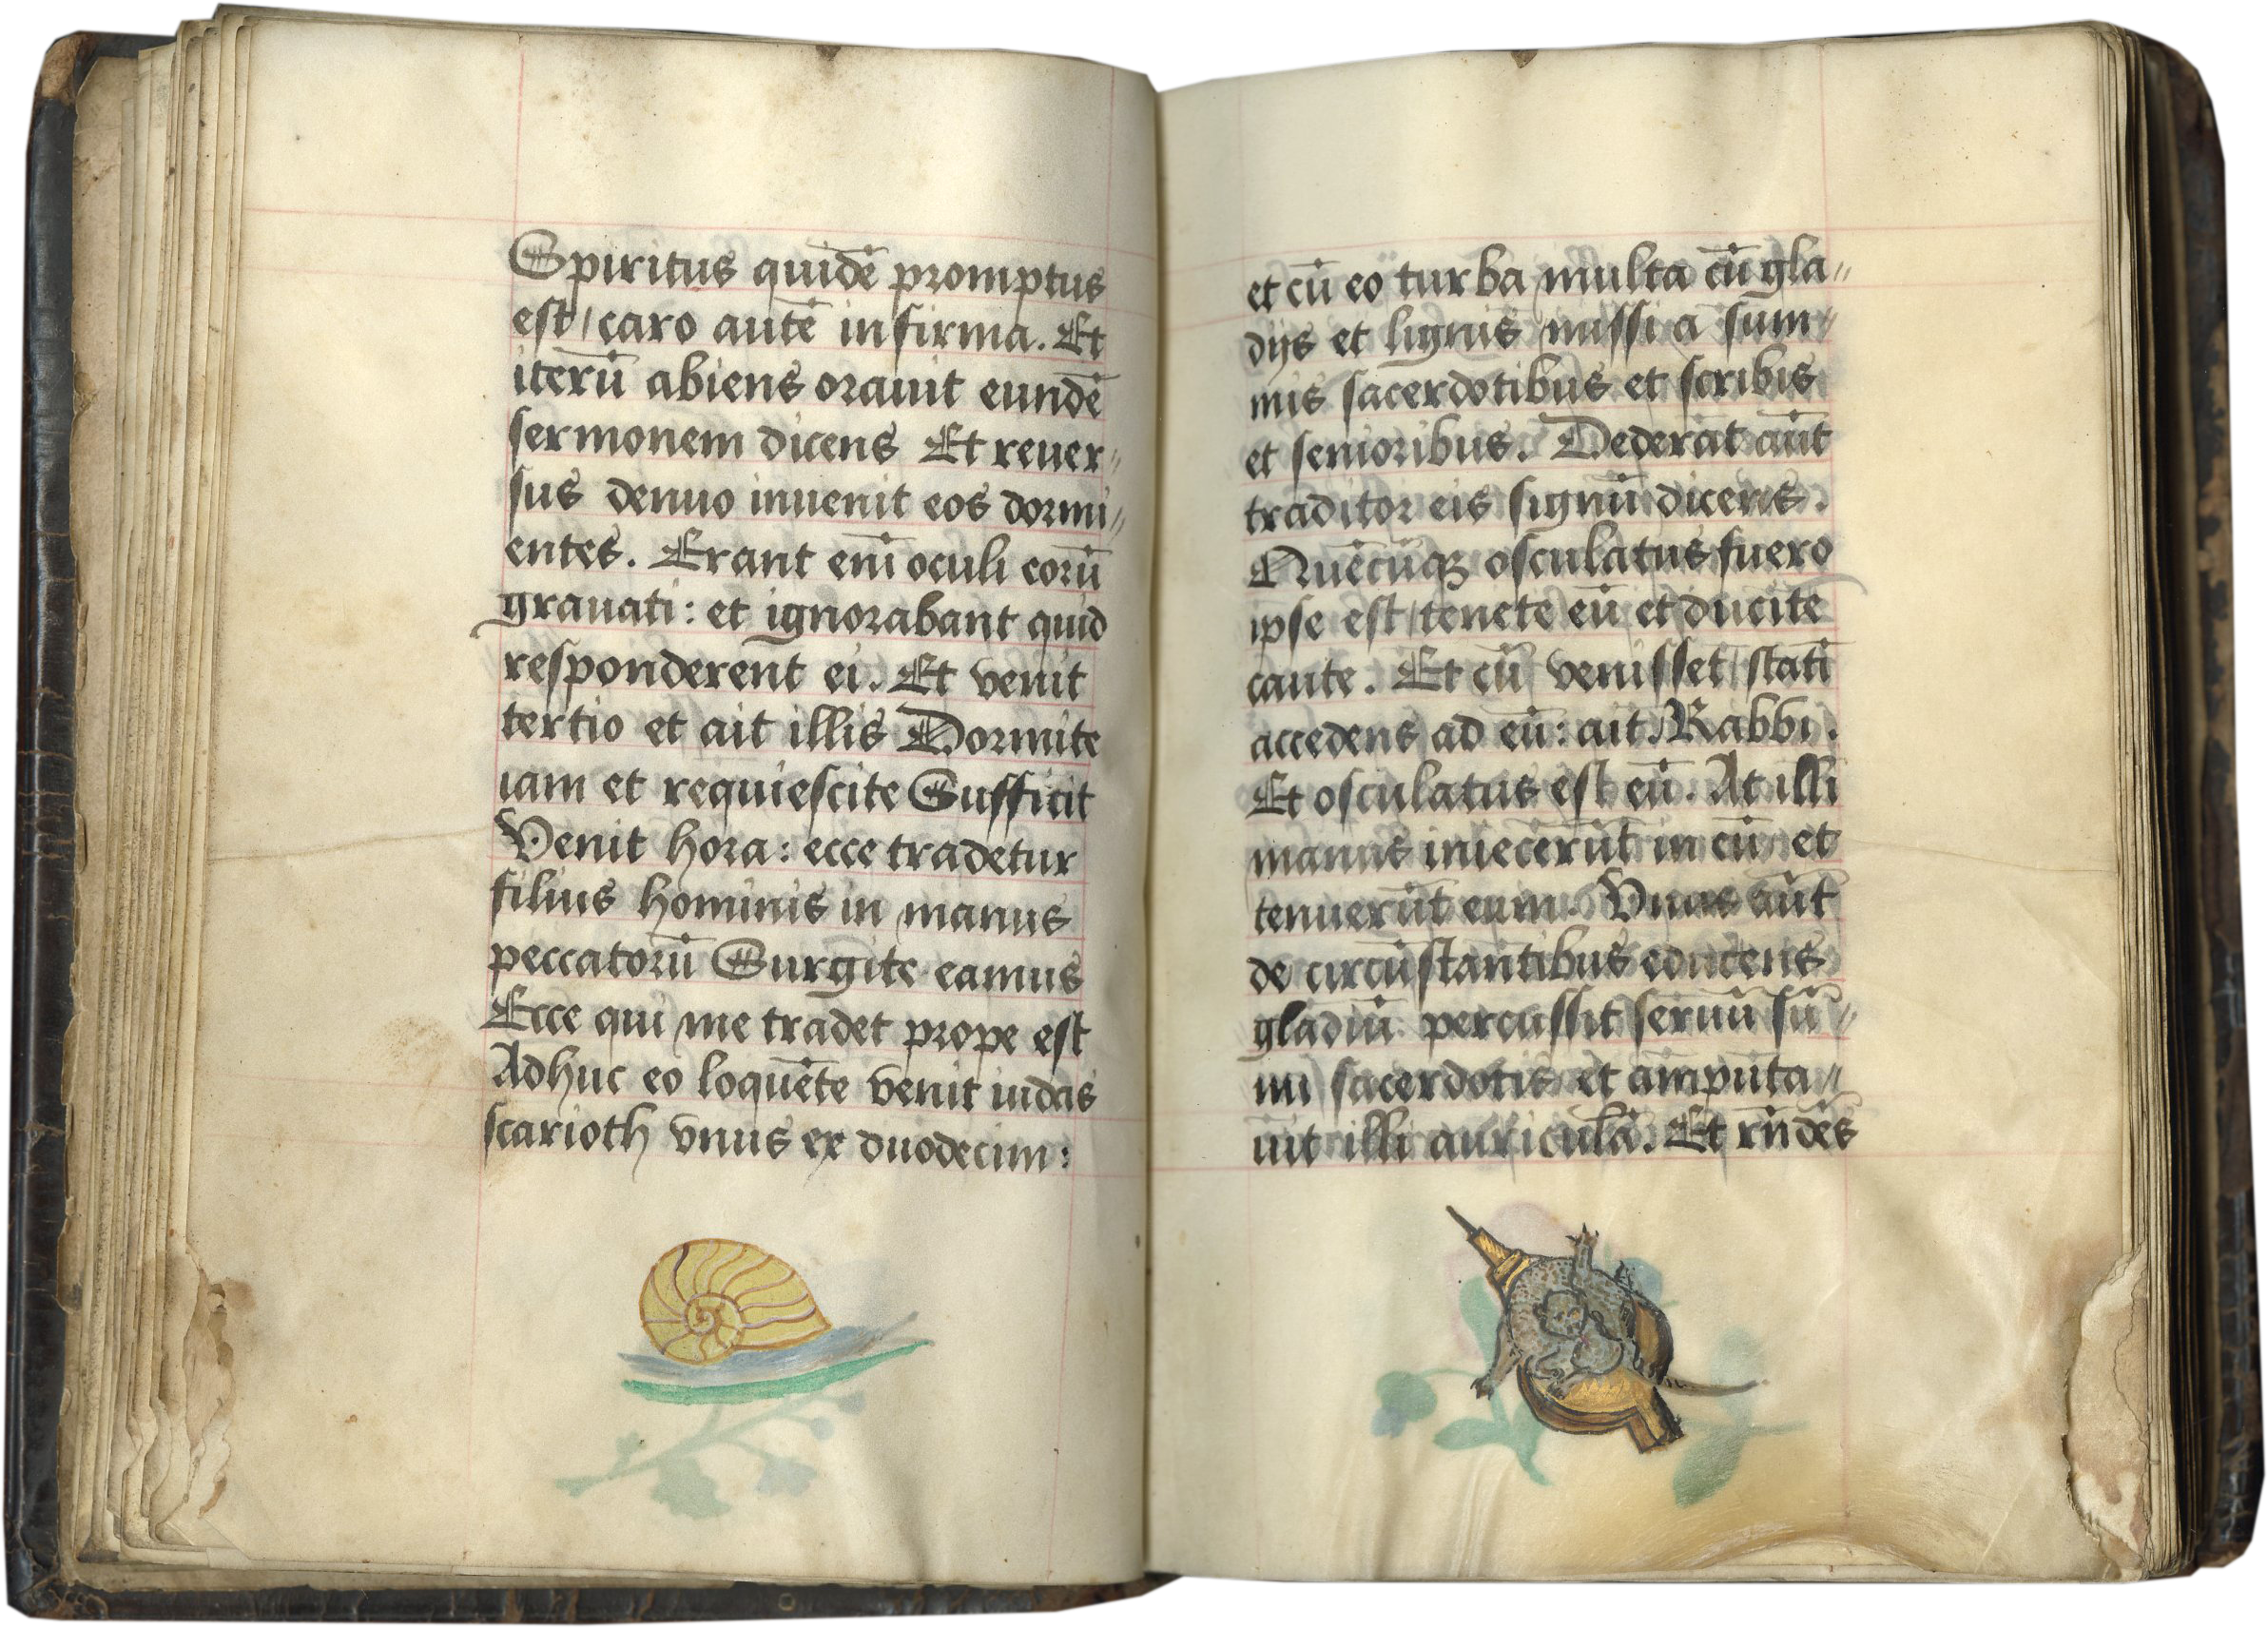 Spiritus quidē promptus
est / caro autē infirma. Et
iterū abiens orauit eundē
sermonem dicens Et reuer〃
sus denuo inuenit eos dormi〃
entes. Erant eni̅ oculi eorū
grauati: et ignorabant quid
responderent ei. Et venit
tertio et ait illis Dormite
iam et requiescite Sufficit
Venit hora: ecce tradetur
filius hominis in manus
peccatorū Surgite eamus
Ecce qui me tradet prope est
Adhuc eo loquēte venit iudas
scarioth vnus ex duodecim:
et cū eo turba multa cū gla〃
dijs et lignis missi a sum〃
mis sacerdotibus et scribis
et senioribus. Dederat aūt
traditor eis signū dicens.
Quēcūqꝫ osculatus fuero
ipse est / tenete eū et ducite
caute. Et cū venisset / stati̅
accedens ad eū: ait. Rabbi.
Et osculatus est eū. At illi
manus iniecerūt in eū et
tenuerūt eum. Vnus aūt
de circūstantibus educens
gladiū percussit seruū sū〃
mi sacerdotis et amputa〃
uit illi auriculā. Et rn̄dēs